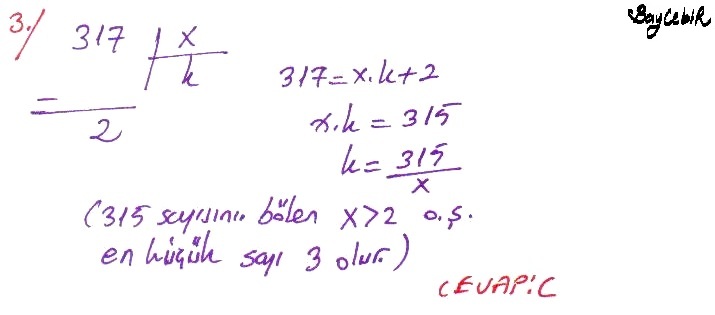 BayCebiR
3./ 317 | x
k
=
2
317 = x.k + 2
x.k = 315
k = 315
x
(315 sayısını bölen x>2 o.ş.
en küçük sayı 3 olur.)
CEVAP: C